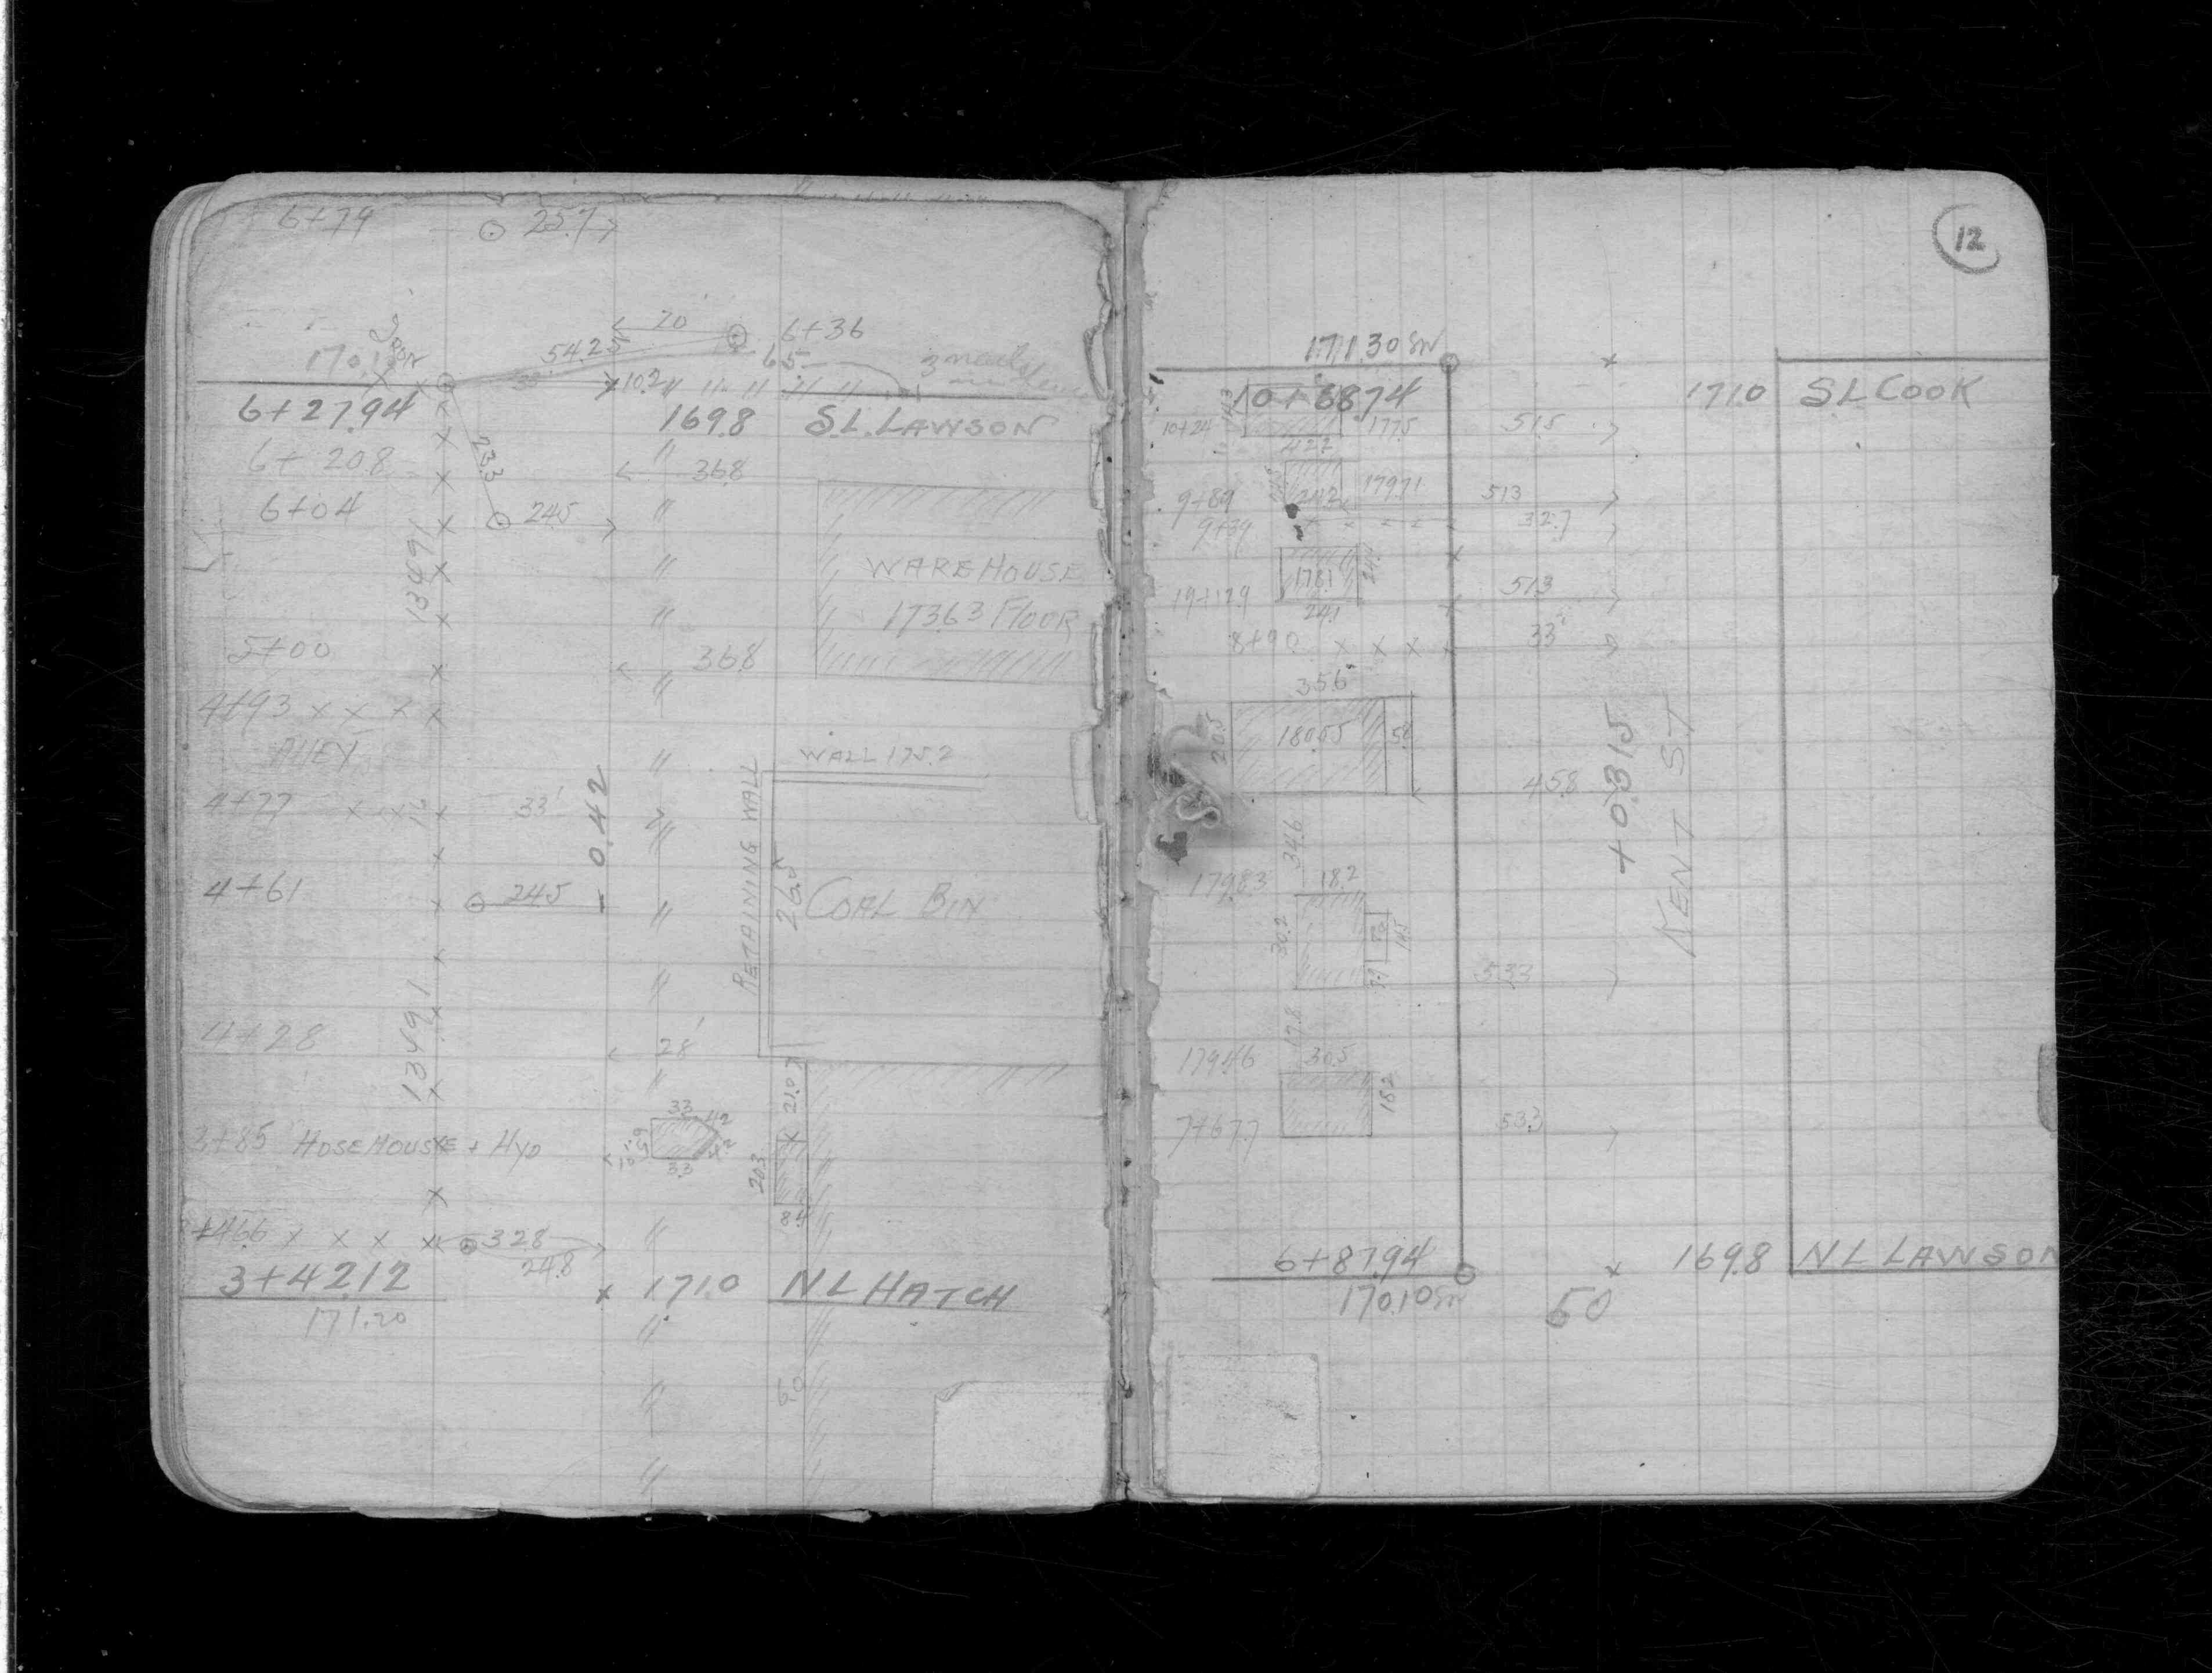 6+79 25.7
20 6+36
54.25 65
170.1
10.2
6+27.94 169.8 S.L. LAWSON
6+20.8 36.8
23.3
6+04 24.5
134.91
WAREHOUSE
173.63 FLOOR
5+00 36.8
4+93
ALLEY
WALL 175.2
4+77 33'
- 0.42
RETAINING WALL
26.5
4+61 24.5
COAL BIN
134.91
4+28 28'
21.0
3+85 HOSE HOUSE + HYD
33
33
20.3
+46.6 32.8
24.8
3+42.12 171.0 NL HATCH
171.20
12
171.30 SW
10+6874 171.0 S.L COOK
10+24 177.5 51.5
42.2
9+89 179.71 51.3
9+39 32.7
178.1 24.4
19+12.9 51.3
24.1
8+90 33
35.6
20.5 180.55
45.8
+0.315
KENT ST
34.6
179.83 18.2
30.2
53.3
17.8
179.46 30.5
18.2
7+67.7 53.3
6+87.94 169.8 NL LAWSON
170.10 SW 50